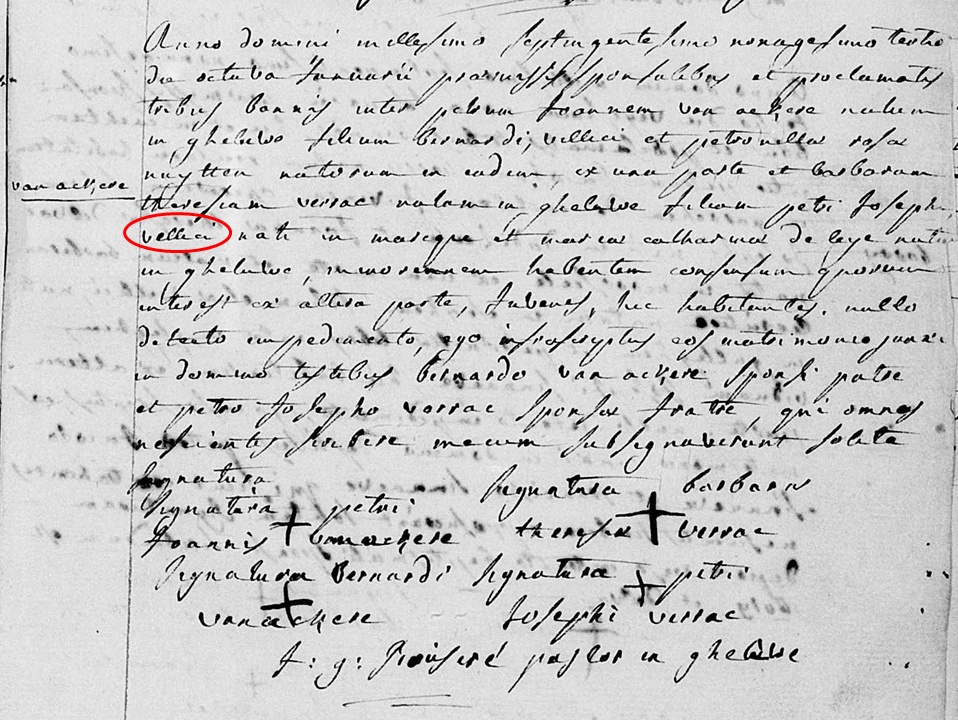 Anno domini millesimo septingentesimo nonagesimo tertio
die octava Januarii praemissis sponsalibus et proclamatis
tribus bannis inter petrum Joannem van ackere natum
in gheluwe filium bernardi, vellici et petronillae rosae
nuytten natorum in eadem, ex una parte et barbaram
van ackere
theresiam verrac natam in gheluwe filiam petri Josephi,
vellici nati in marcque et mariae catharinae de leye nata
in gheluwe, minorennem habentem consensum quorum
interest ex altera parte, Juvenes, hic habitantes. nullo
detecto impedimento, ego infrascriptus eos matrimonio junxi
in domino testibus bernardo van ackere sponsi patre
et petro Josepho verrac sponsae fratre, qui omnes
nescientes scribere mecum subsignaverunt solita
signatura
Signatura petri
Joannis + van ackere
Signatura barbarae
theresiae + verrac
Signatura Bernardi
van + ackere
Signatura + petri
Josephi verrac
J: g: pastor in gheluwe